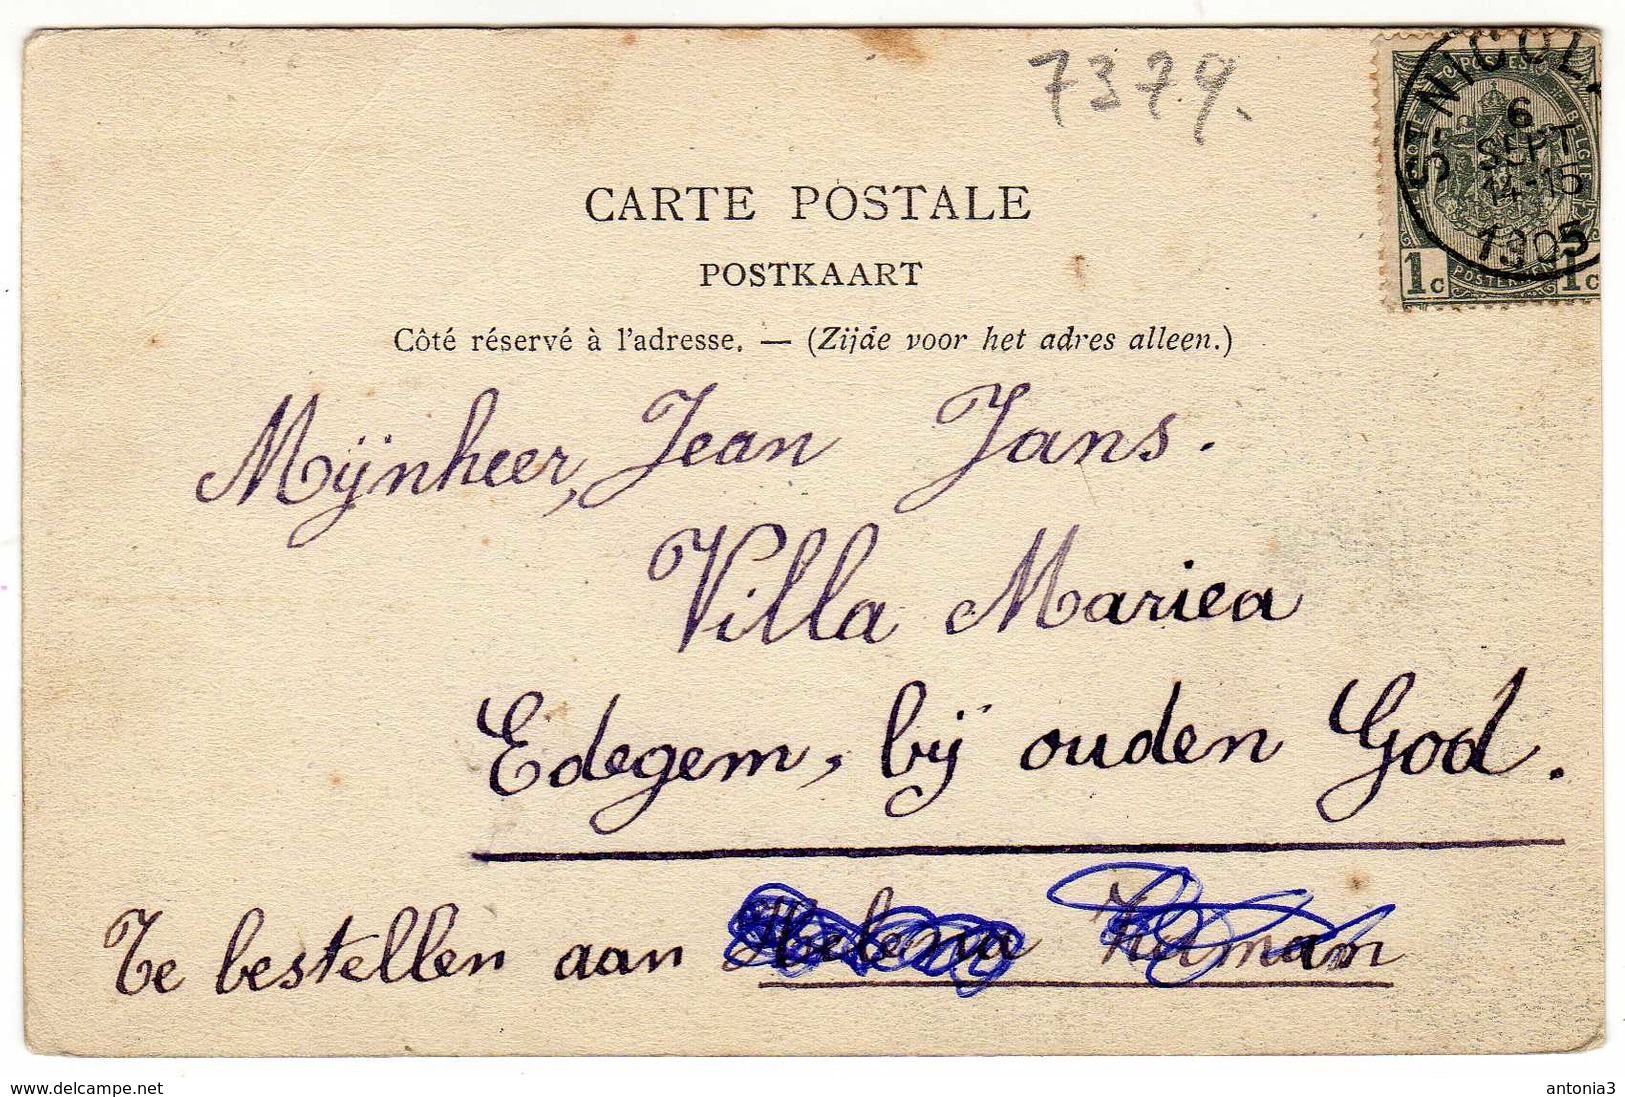 7379.
CARTE POSTALE
POSTKAART
Côté réservé à l'adresse. — (Zijde voor het adres alleen.)
ST-NICOL
6
SEPT
14-15
1905
POSTES
BELGIE
POSTERIJEN
1c 1c
Mijnheer, Jean Jans.
Villa Mariea
Edegem, bij ouden God.
Te bestellen aan Helena
www.delcampe.net
antonia3